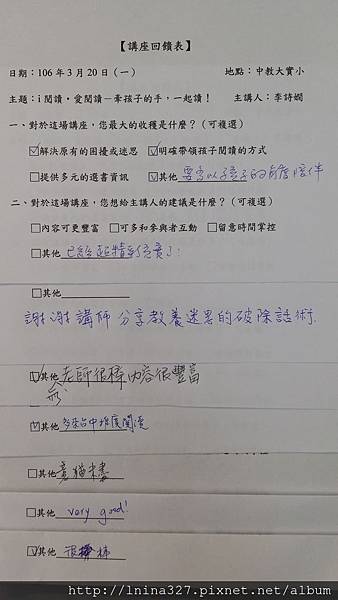 【講座回饋表】
日期：106 年 3 月 20 日（一） 地點：中教大實小
主題：i 閱讀・愛閱讀－牽孩子的手，一起讀！ 主講人：李詩嫻
一、對於這場講座，您最大的收穫是什麼？（可複選）
☑解決原有的困擾或迷思 ☑明確帶領孩子閱讀的方式
□提供多元的選書資訊 ☑其他 要多以孩子的角度陪伴
二、對於這場講座，您想給主講人的建議是什麼？（可複選）
□內容可更豐富 □可多和參與者互動 □留意時間掌控
□其他 已經超精彩
□其他
謝謝講師分享教養迷思的破除話術.
☑其他 老師很棒內容很豐富
☑其他 多來台中推廣閱讀
□其他 意猶未盡
□其他 very good!
☑其他 很棒
http://lnina327.pixnet.net/album